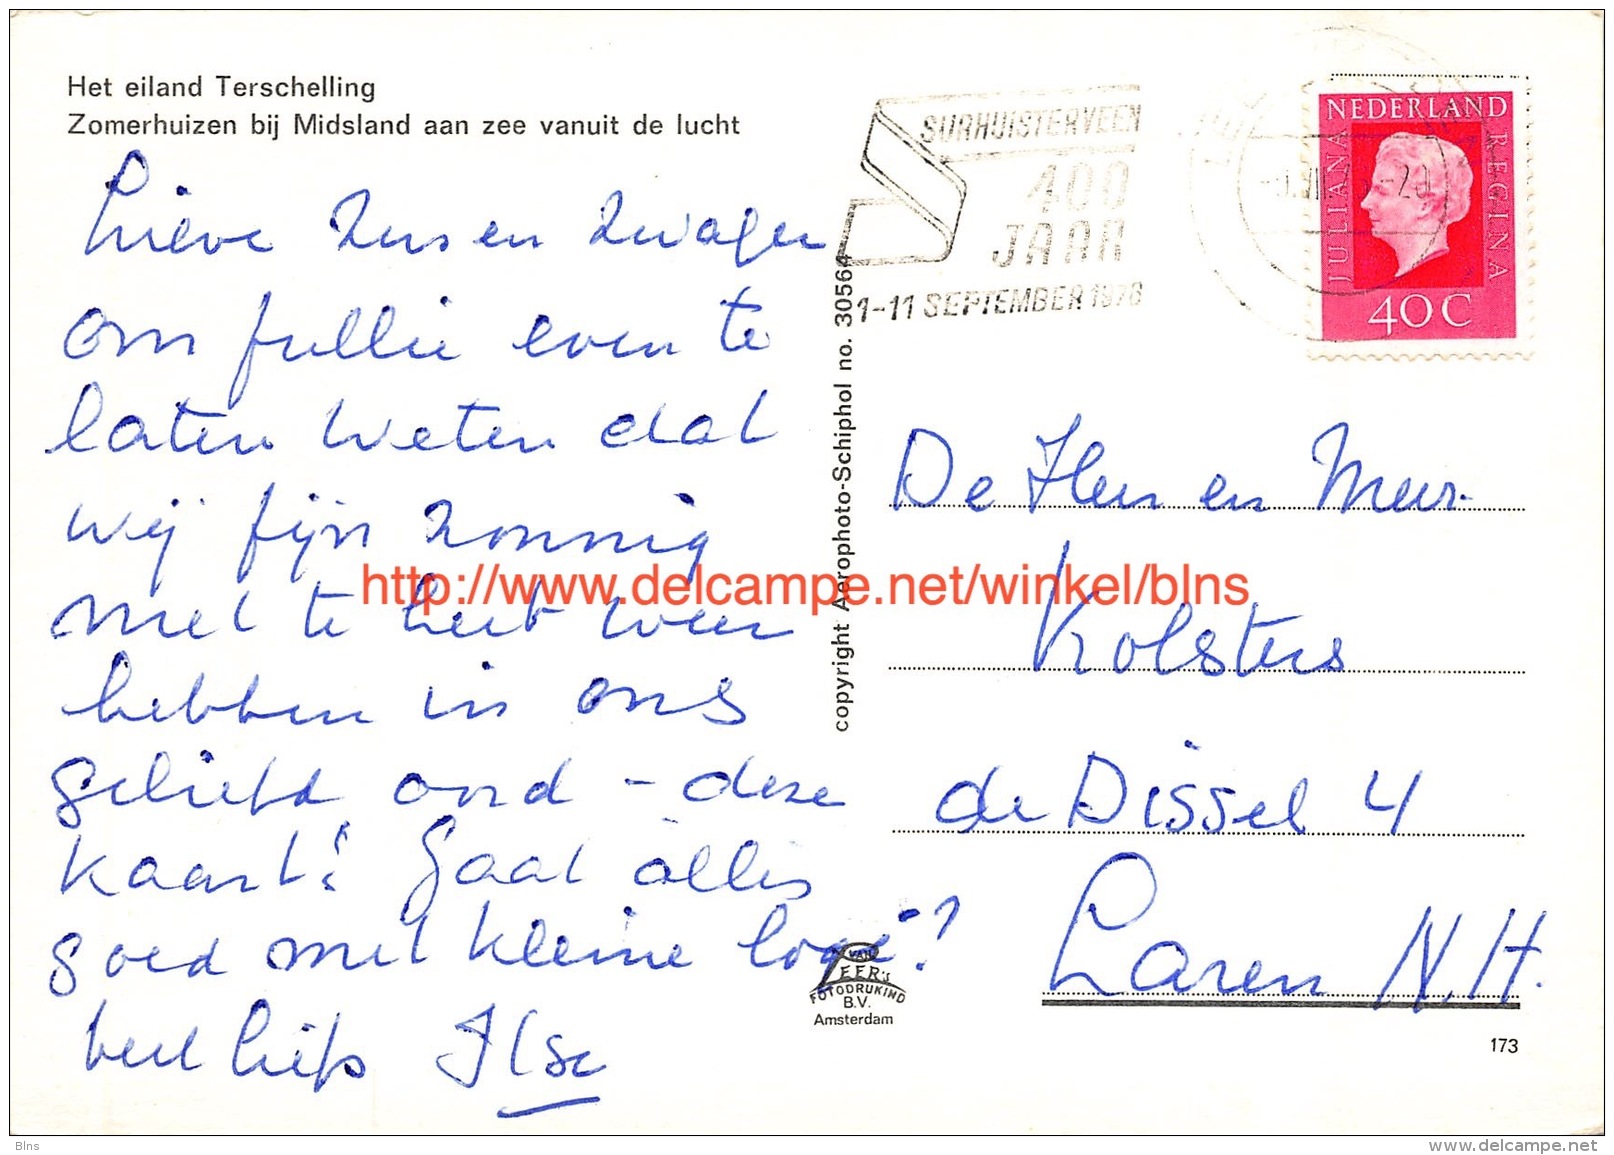 Het eiland Terschelling
Zomerhuizen bij Midsland aan zee vanuit de lucht
Lieve Zus en Zwager
om jullie even te
laten weten dat
wij fijn zonnig
met te heet weer
hebben in ons
geliefd oord - deze
kaart! Gaat alles
goed met kleine logé?
veel liefs Ilse
SURHUISTERVEEN
400
JAAR
1-11 SEPTEMBER 1976
NEDERLAND
JULIANA
REGINA
40C
copyright Aerophoto-Schiphol no. 30564
De Heer en Mevr.
Kolsters
de Dissel 4
Laren N.H.
VAN
LEER's
FOTODRUKIND
B.V.
Amsterdam
173
http://www.delcampe.net/winkel/blns
Blns
www.delcampe.net